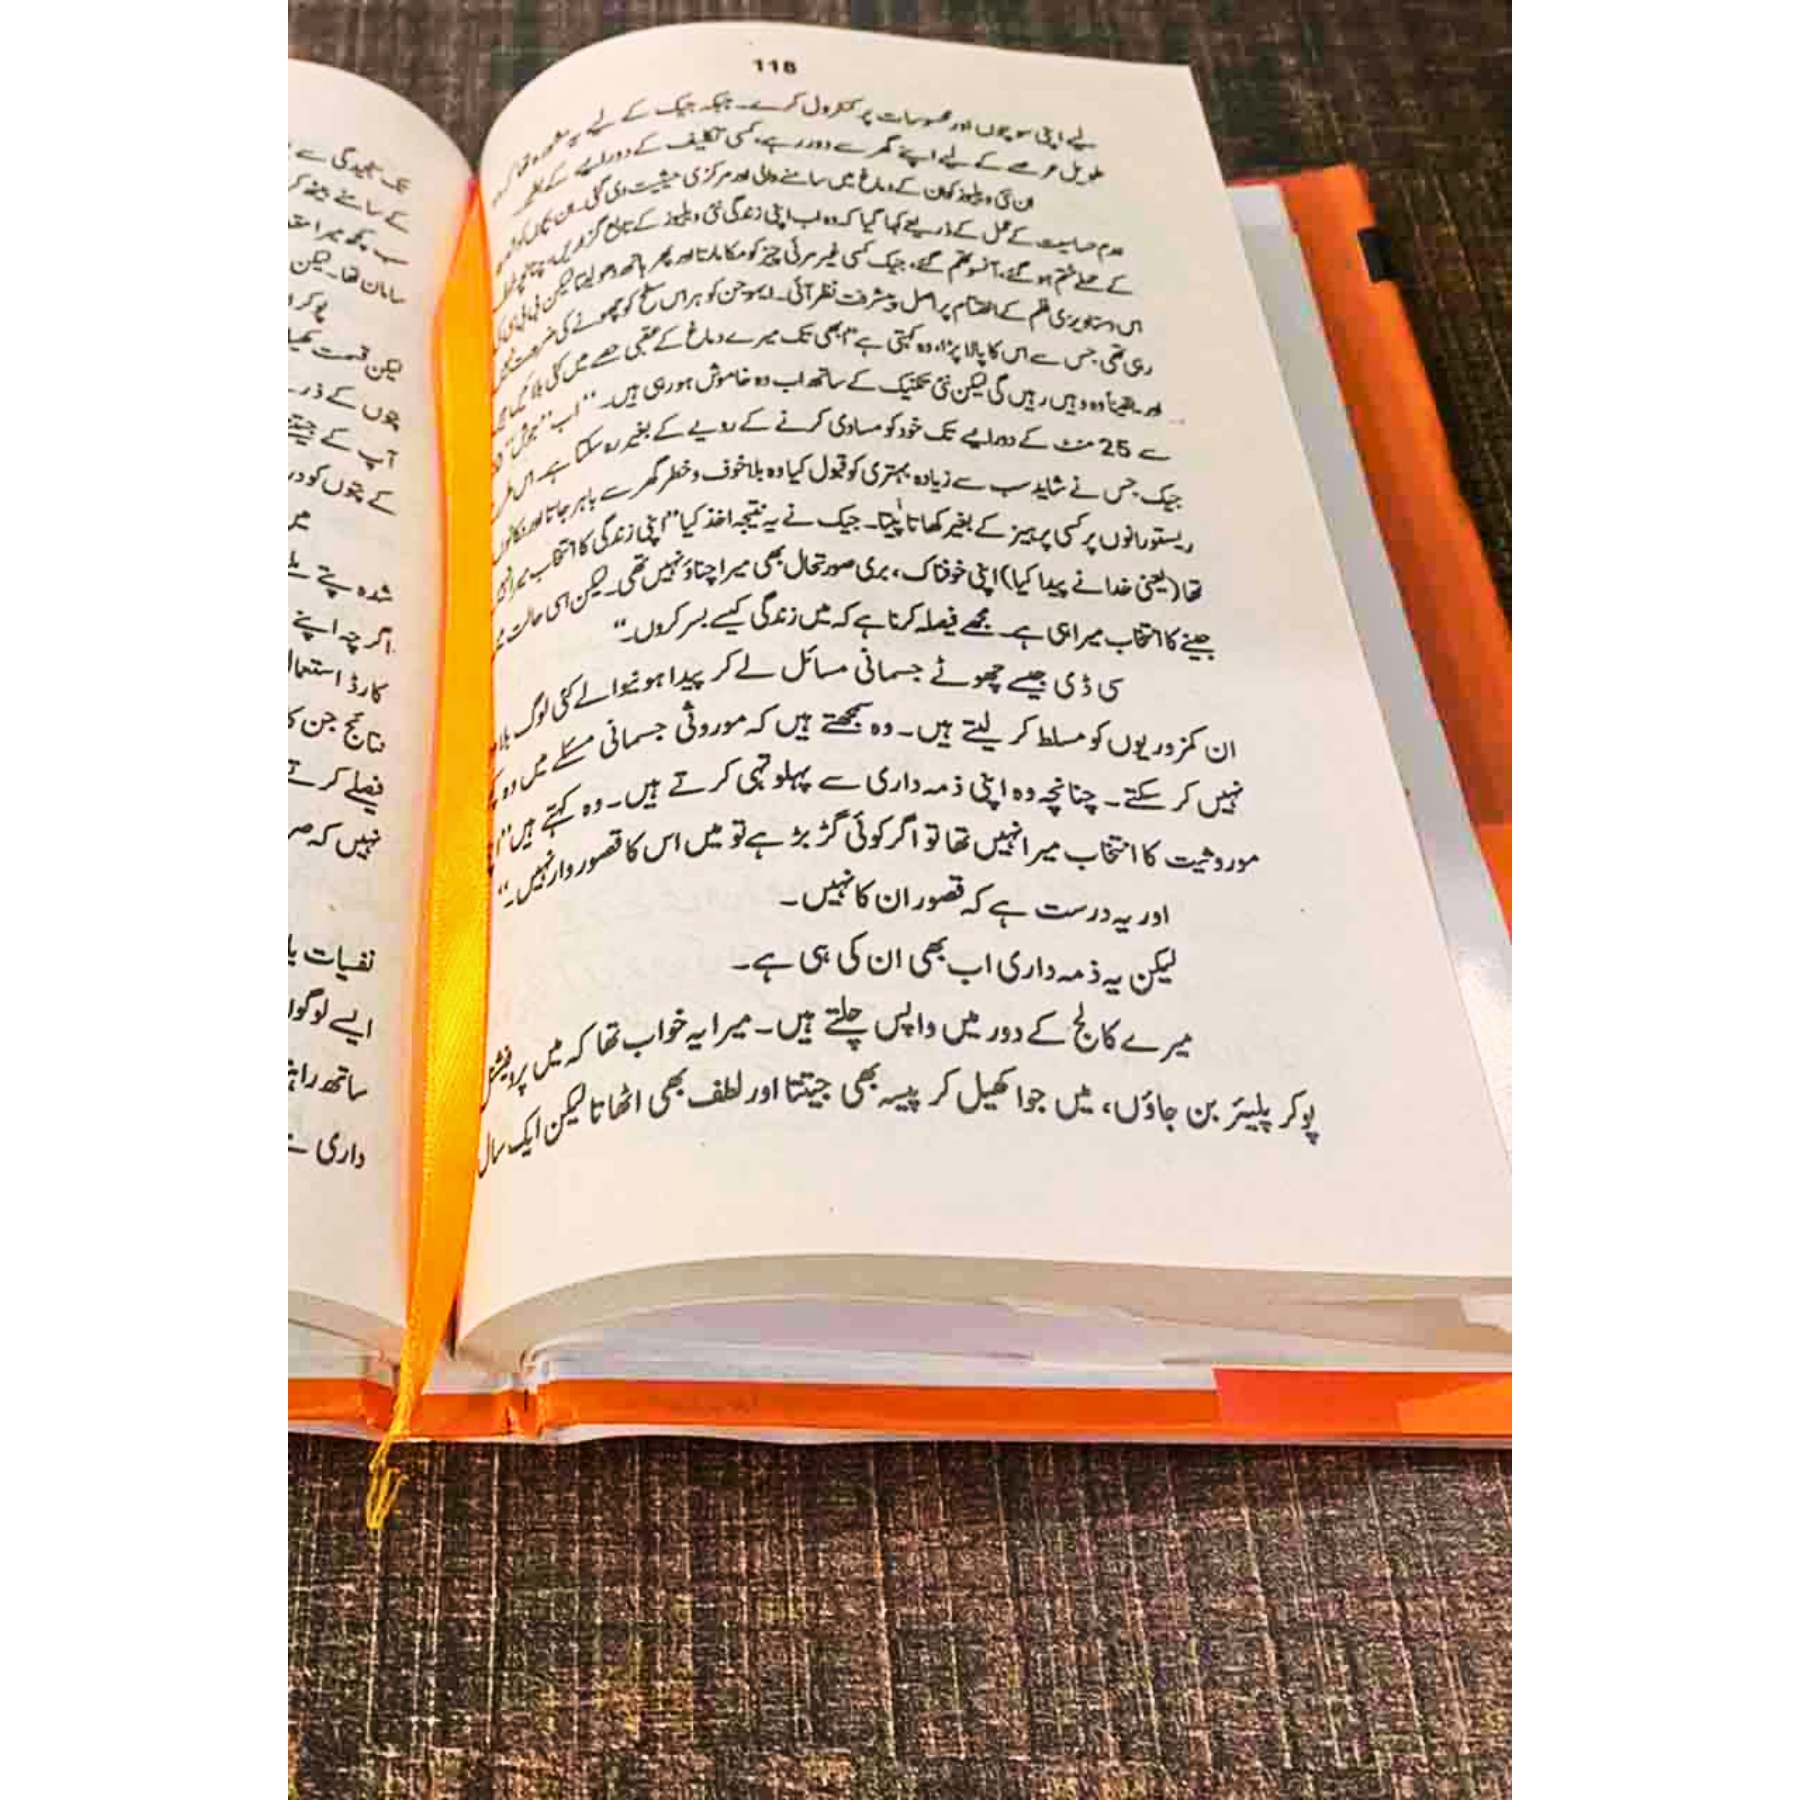 118
لیے اپنی سوچوں اور محسوسات پر کنٹرول کرے۔ جبکہ جیک کے لیے یہ
طویل عرصے کے لیے اپنے گھر سے دور رہے، کسی تکلیف کے دورانیے کے
ان نئی ویلیوز کو ان کے دماغ میں سامنے والی اور مرکزی حیثیت دی گئی۔ ان
عدم حساسیت کے عمل کے ذریعے کہا گیا کہ وہ اب اپنی زندگی نئی ویلیوز کے تابع گزاریں، چنانچہ
کے حملے ختم ہو گئے، آنسو تھم گئے، جیک کسی غیر مرئی چیز کو مکا مارتا اور پھر ہاتھ دھو لیتا لیکن
اس دستاویزی فلم کے اختتام پر اصل پیشرفت نظر آئی۔ ایموجن کو ہر اس سطح کو چھونے کی ضرورت
رہی تھی جس سے اس کا پالا پڑا، وہ کہتی ہے "ابھی تک میرے دماغ کے عقبی حصے میں کئی بلائیں
اور یقیناً وہ وہیں رہیں گی لیکن نئی تکنیک کے ساتھ اب وہ خاموش ہو رہی ہیں۔" اب "جوش"
سے 25 منٹ کے دورانیے تک خود کو مساوی کرنے کے رویے کے بغیر رہ سکتا ہے۔ اس
جیک جس نے شاید سب سے زیادہ بہتری کو قبول کیا وہ بلا خوف و خطر گھر سے باہر جاتا اور
ریستورانوں پر کسی پرہیز کے بغیر کھاتا پیتا۔ جیک نے یہ نتیجہ اخذ کیا "اپنی زندگی کا انتخاب میرا نہیں
تھا (یعنی خدا نے پیدا کیا) اپنی خوفناک، بری صورتحال بھی میرا چناؤ نہیں تھی۔ لیکن اسی حالت
جینے کا انتخاب میرا ہی ہے۔ مجھے فیصلہ کرنا ہے کہ میں زندگی کیسے بسر کروں۔"
سی ڈی جیسے چھوٹے جسمانی مسائل لے کر پیدا ہونیوالے کئی لوگ
ان کمزوریوں کو مسلط کر لیتے ہیں۔ وہ سمجھتے ہیں کہ موروثی جسمانی مسئلے میں وہ
نہیں کر سکتے۔ چنانچہ وہ اپنی ذمہ داری سے پہلو تہی کرتے ہیں۔ وہ کہتے ہیں
موروثیت کا انتخاب میرا نہیں تھا تو اگر کوئی گڑ بڑ ہے تو میں اس کا قصور وار نہیں۔"
اور یہ درست ہے کہ قصور ان کا نہیں۔
لیکن یہ ذمہ داری اب بھی ان کی ہی ہے۔
میرے کالج کے دور میں واپس چلتے ہیں۔ میرا یہ خواب تھا کہ میں پروفیشنل
پوکر پلیئر بن جاؤں، میں جوا کھیل کر پیسہ بھی جیتتا اور لطف بھی اٹھاتا لیکن ایک سال
تک سنجیدگی سے
کے سامنے بیٹھ
سب کچھ میرا
سامان تھا۔ لیکن
پوکر
لیکن قسمت
پتوں کے
آپ کے جیتنے
کے پتوں کو
شدہ پتے
اگر چہ اپنے
کارڈ
نتائج جن
فیصلے
نہیں کہ
نفسیات
ایسے
ساتھ
داری